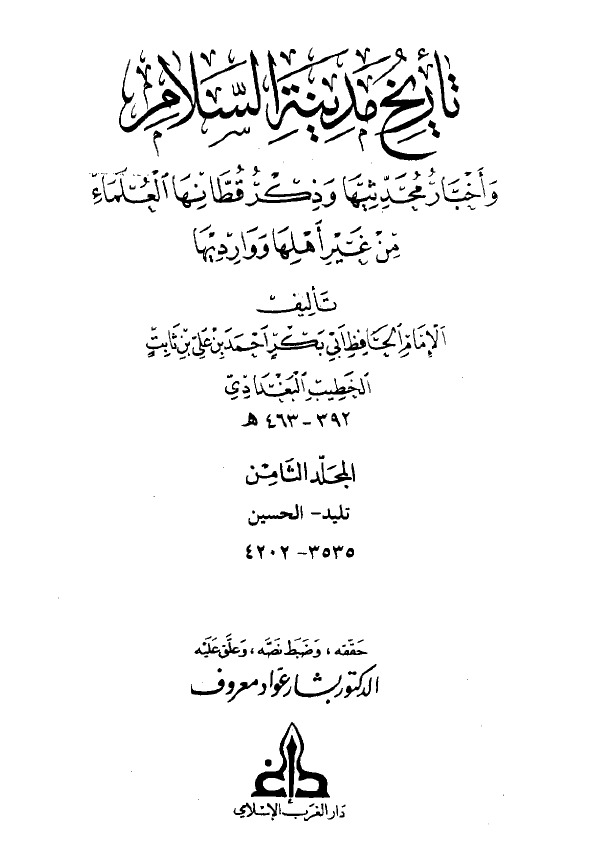 تَأْرِيخُ مَدِينَةِ السَّلَامِ
وَأَخْبَارُ مُحَدِّثِيهَا وَذِكْرُ قُطَّانِهَا الْعُلَمَاءِ
مِنْ غَيْرِ أَهْلِهَا وَوَارِدِيهَا
تَأليف
الإِمَامِ الْحَافِظِ أَبِي بَكْرٍ أَحْمَدَ بْنِ عَلِيِّ بْنِ ثَابِتٍ
الْخَطِيبِ الْبَغْدَادِيِّ
٣٩٢ - ٤٦٣ هـ
المجلّد الثامن
تليد - الحسين
٣٥٣٥ - ٤٢٠٢
حَقّقه، وَضَبَط نَصَّه، وَعَلَّق عَلَيْه
الدكتور بشار عواد معروف
دار الغرب الإسلامي